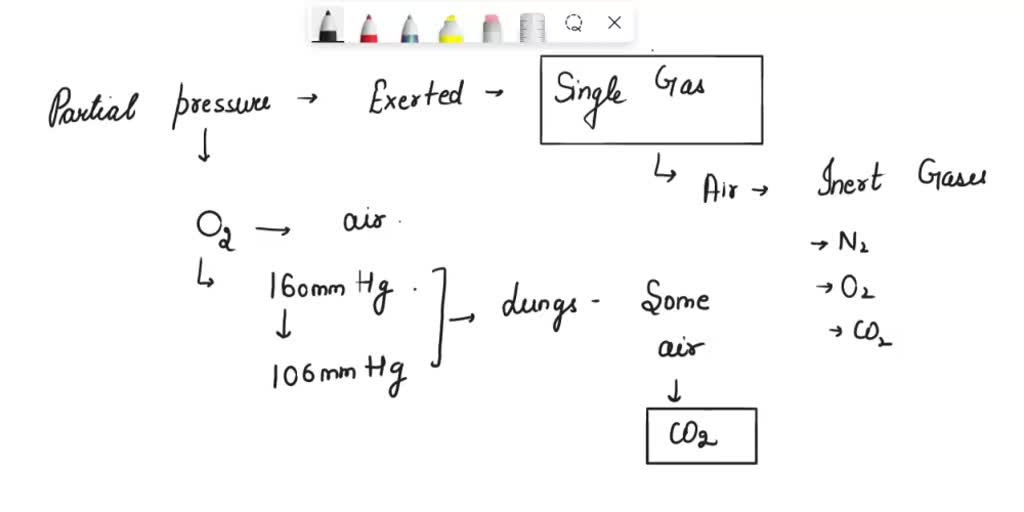 Partial pressure → Exerted → Single Gas
↓
↳ Air → Inert Gases
O2 → air
→ N2
↳ 160mm Hg
→ O2
↓
→ Lungs - Some
→ CO2
air
106mm Hg
↓
CO2